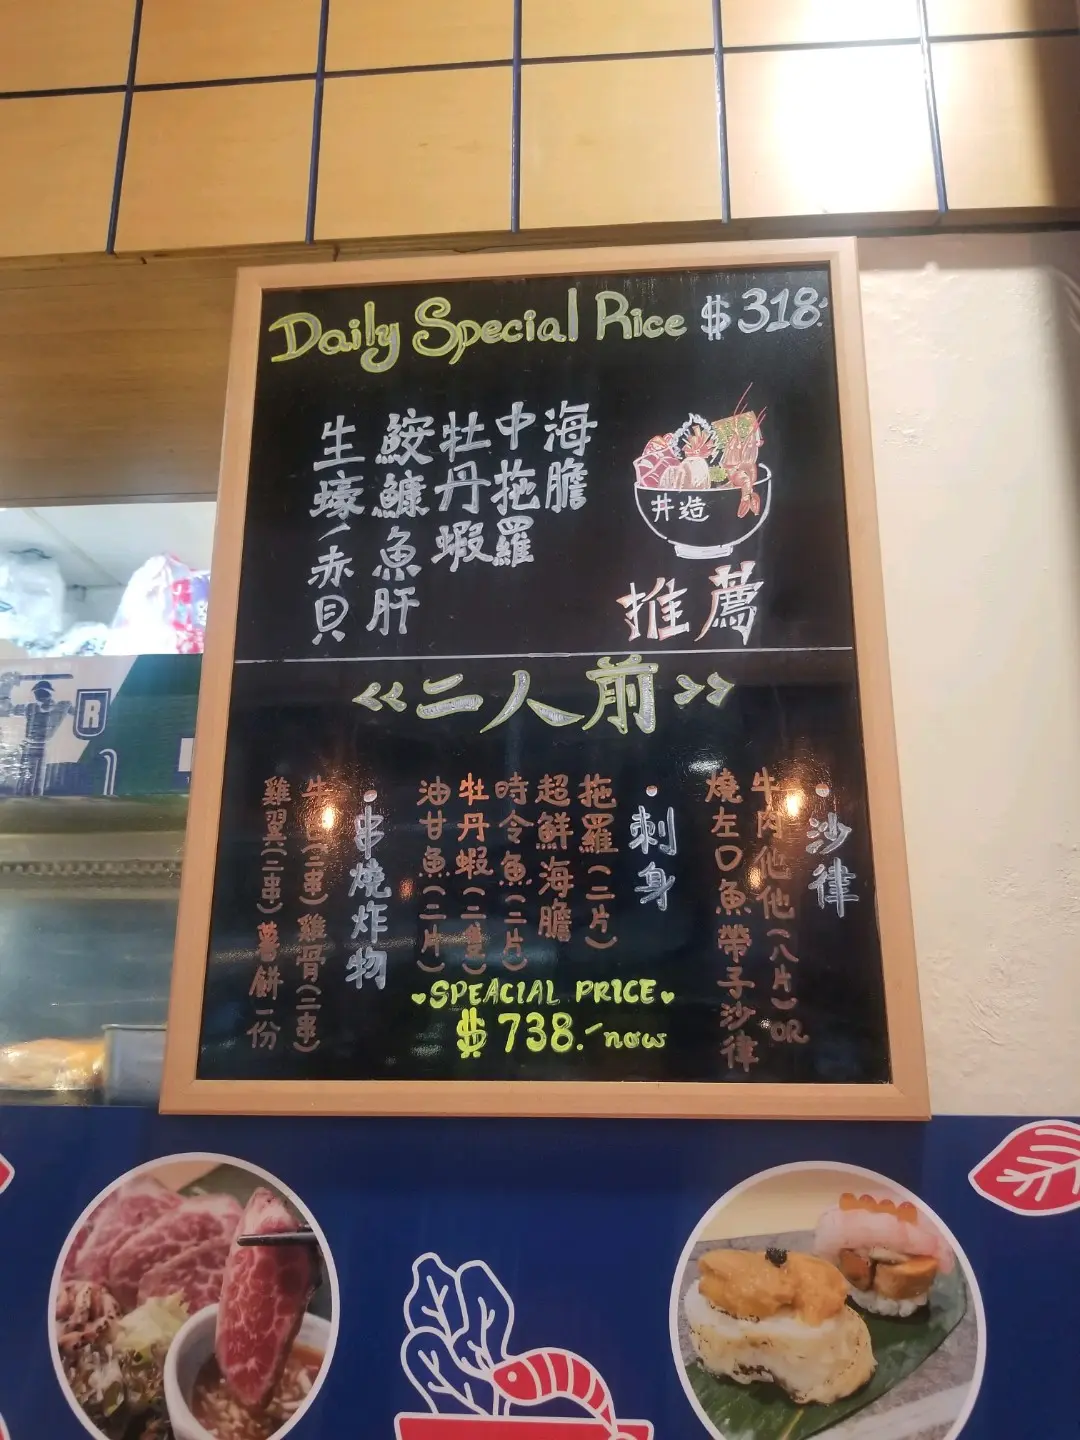 Daily Special Rice $318.-
海膽
中拖羅
牡丹蝦
鮟鱇魚肝
生蠔/赤貝
丼造
推薦
<<二人前>>
•沙律
牛肉他他(八片)OR
燒左口魚帶子沙律
•刺身
拖羅(二片)
超鮮海膽
時令魚(二片)
牡丹蝦(二隻)
油甘魚(二片)
•串燒炸物
(二串)雞骨(二串)
雞翼(二串)薯餅一份
♥SPEACIAL PRICE♥
$738.- now
R